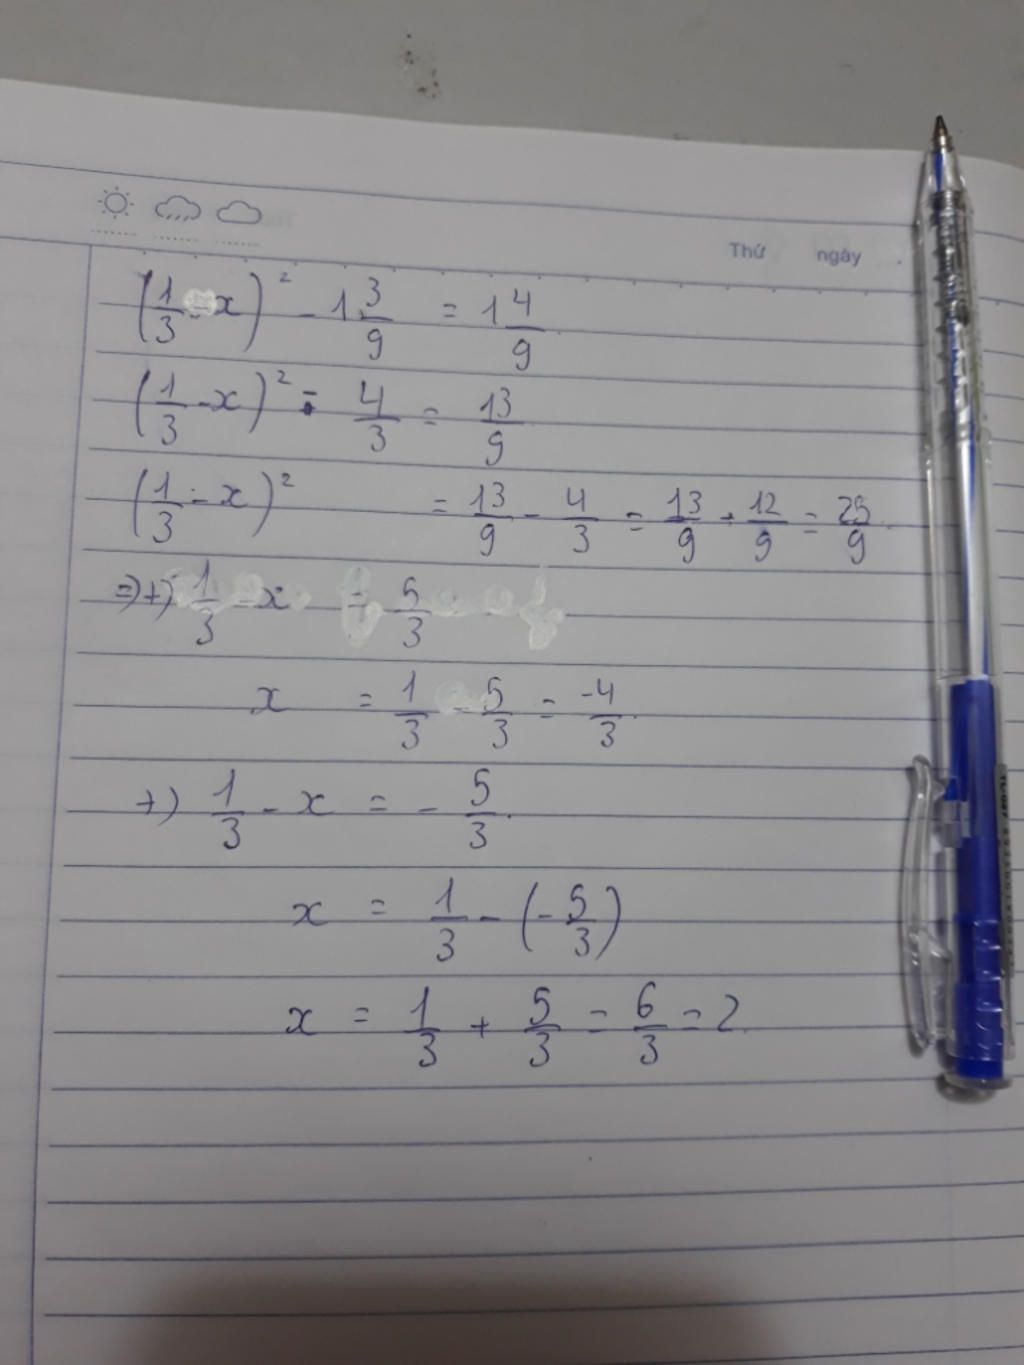 Thứ ngày
(1/3 - x)² - 1 3/9 = 1 4/9
(1/3 - x)² - 4/3 = 13/9
(1/3 - x)² = 13/9 - 4/3 = 13/9 + 12/9 = 25/9
=> +) 1/3 - x = 5/3
x = 1/3 - 5/3 = -4/3
+) 1/3 - x = - 5/3
x = 1/3 - (-5/3)
x = 1/3 + 5/3 = 6/3 = 2